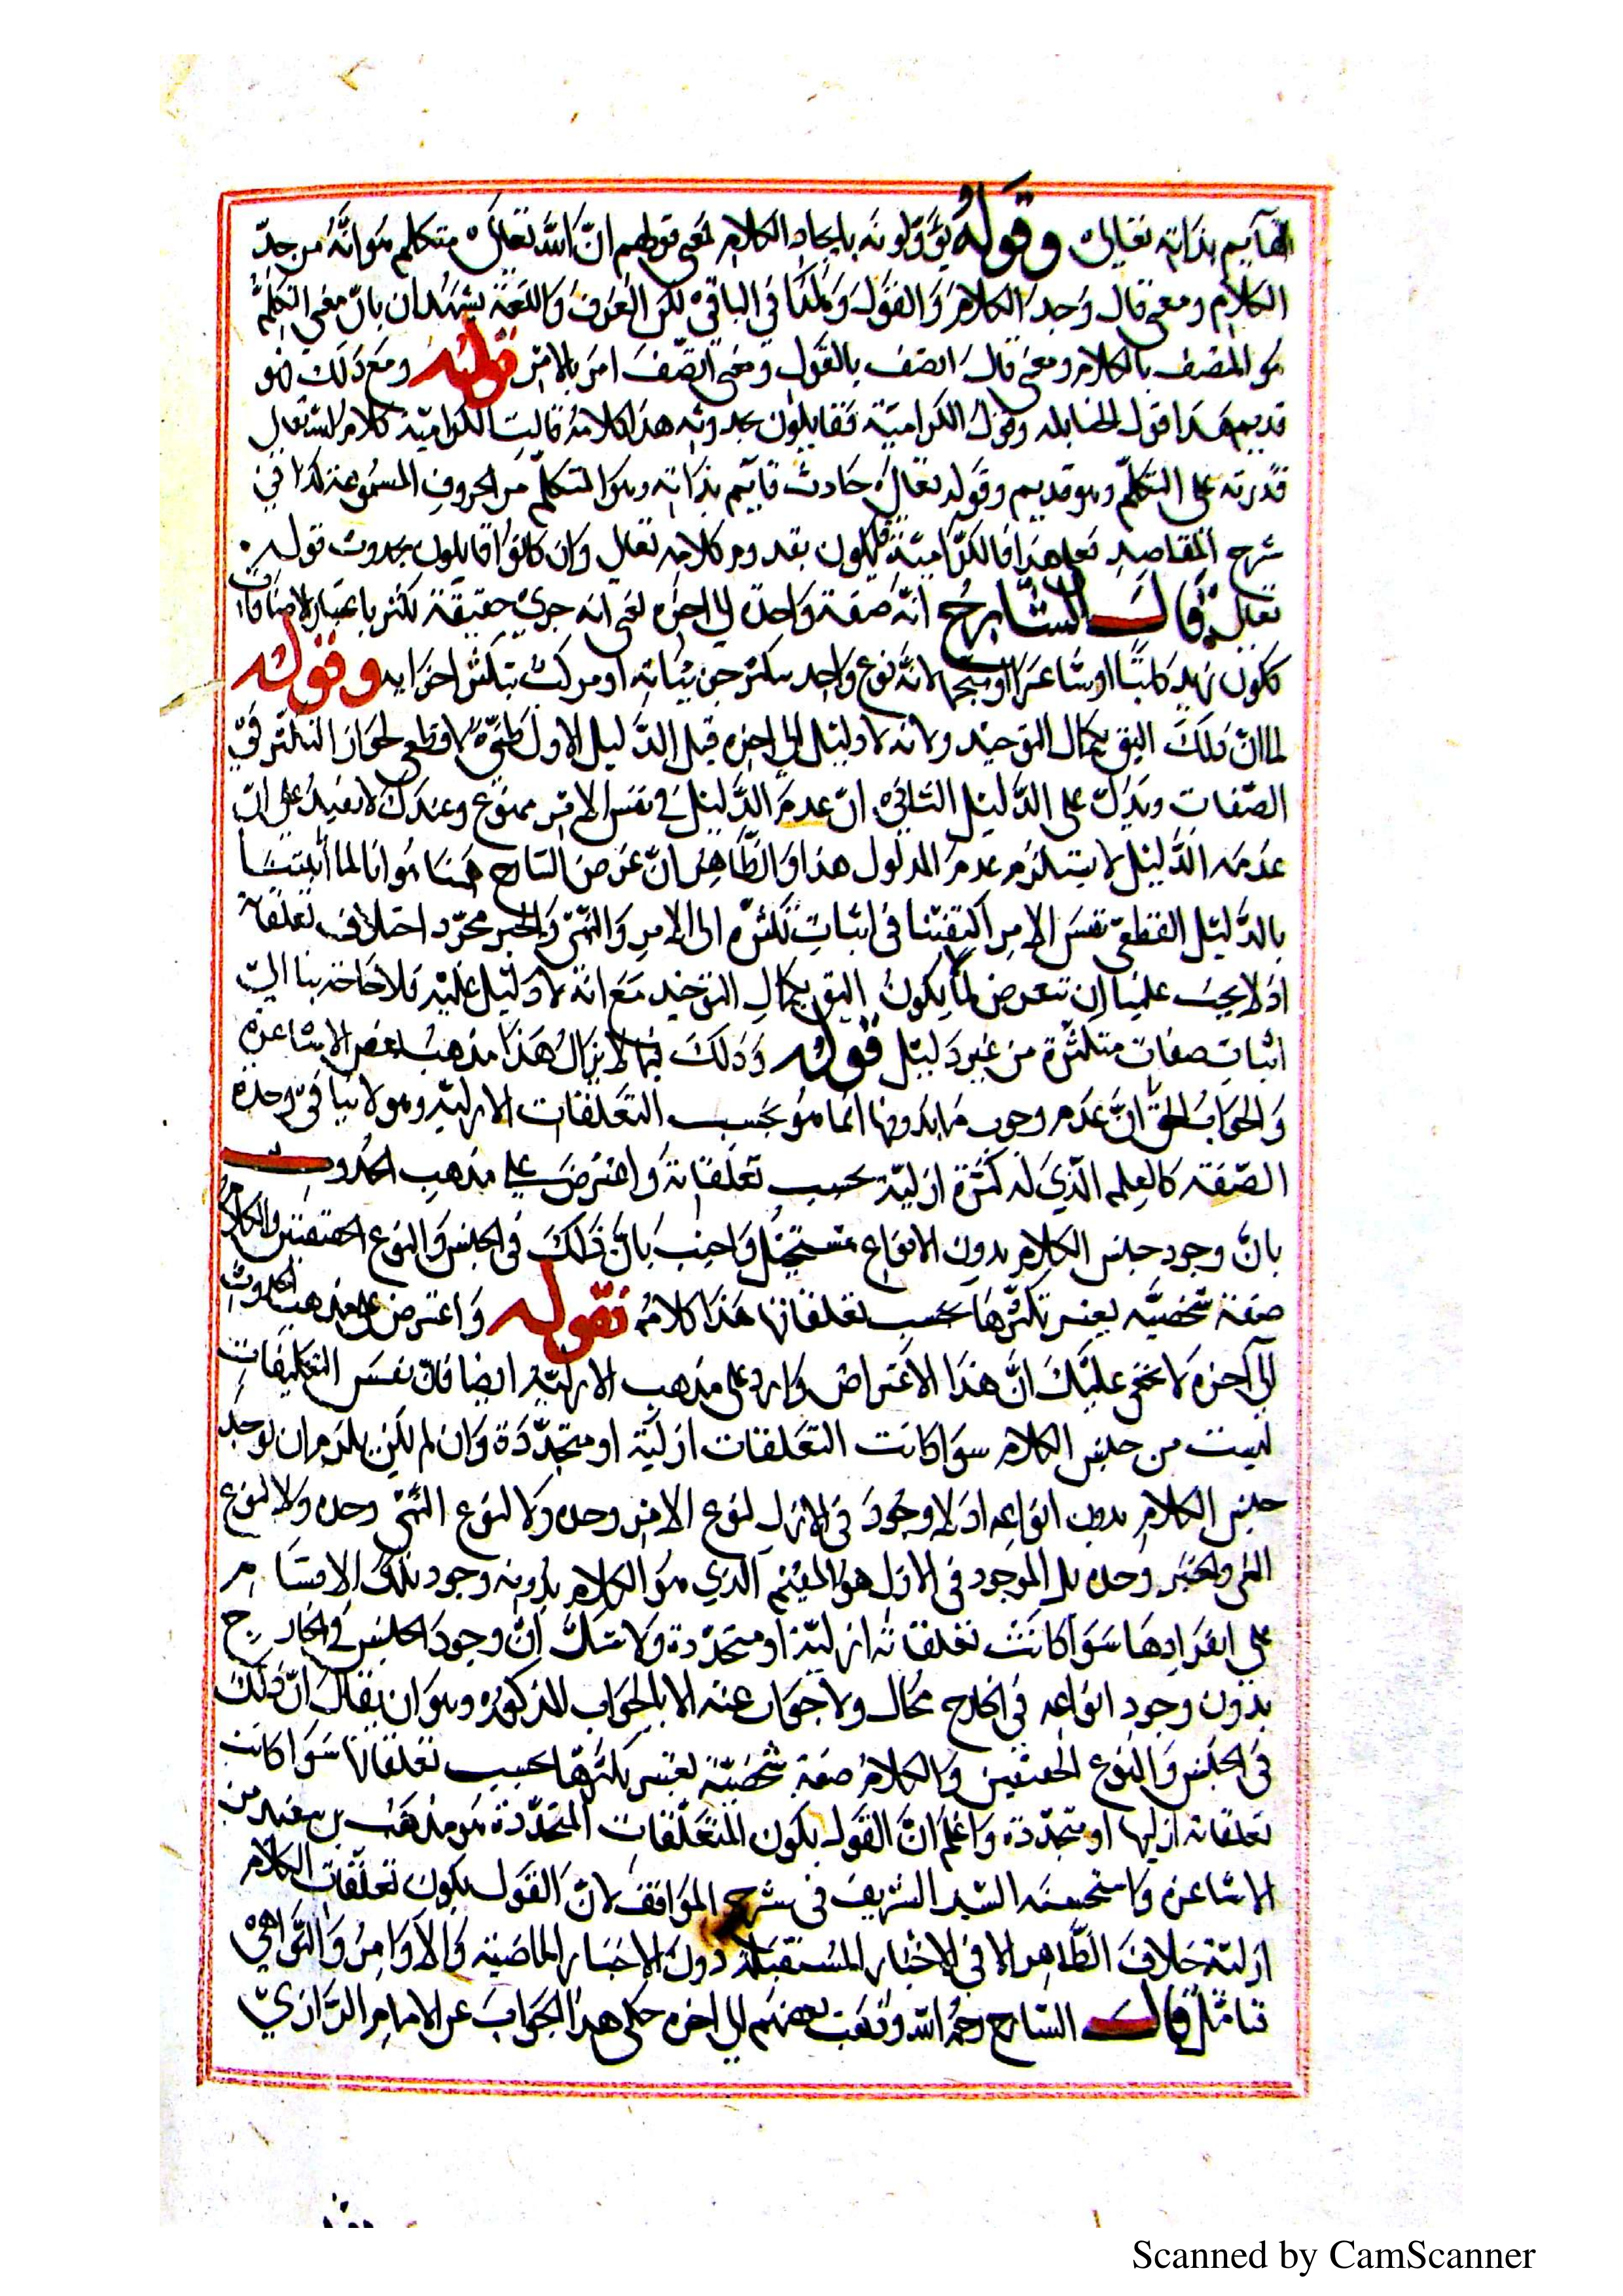 القآيم بذاته تعالى وقوله يؤولونه بايجاد الكلام لمعنى قولهم ان الله تعالى متكلم هو انه موجد
الكلام ومعنى قال وجد الكلام والقول وكذا في الباقي لكن العرف واللغة يشهدان بان معنى التكلم
هو المتصف بالكلام ومعنى قال اتصف بالقول ومعنى اتصف امر بالامر قوله ومع ذلك فهو
قديم هذا قول الحنابله وقول الكرامية فقايلون بحدوثه هذا كلامه قالت الكرامية كلام الله تعالى
قدرته على التكلم وهو قديم وقوله تعالى حادث قايم بذاته وهو المتكلم من الحروف المسموعة كذا في
شرح المقاصد فعلى هذا فالكرامية قايلون بقدوم كلامه تعالى وان كانوا قايلون بحدوث قوله
تعالى قال الشارح انه صفة واحدة الى اخره لمعنى انه جزئ حقيقة تكثر باعتبار الاضافات
ككون زيد كاتبا او شاعرا او منجما لانه نوع واحد يتكثر جزيئاته او مركب بتكثر اجزايه وقوله
لما ان ذلك اليق بكمال التوحيد ولانه لا دليل الى اخره قيل الدليل الاول ظني لا قطعي لجواز التكثر في
الصفات ويدل على الدليل الثاني ان عدم الدليل في نفس الامر ممنوع وعندك لا يفيد على ان
عدمه الدليل لا يستلزم عدم المدلول هذا والظاهر ان غرض الشارح ههنا هو انا لما أثبتنا
بالدليل القطعي نفس الامر اكتفينا في اثبات تكثره الى الامر والنهي والخبر مجرد اختلاف تعلقاته
اذ لا يجب علينا ان نتعرض لما يكون اليق بكمال التوحيد مع انه لا دليل عليه فلا حاجة بنا الى
اثبات صفات متكثرة من غير دليل قوله وذلك فيما لا يزال هذا مذهب بعض الاشاعرة
والجواب الحق ان عدم وجوب ما بدونها انما هو بحسب التعلقات الازلية وهو لا ينافي وحدة
الصفة كالعلم الذي له كثرة ازلية بحسب تعلقاته واعترض على مذهب الحدوث
بان وجود جنس الكلام بدون الانواع مستحيل واجيب بان ذلك في الجنس والنوع الحقيقيين والكلام
صفة شخصية يعتبر تكثرها بحسب تعلقاتها هذا كلامه قوله واعترض على مذهب الحدوث
الى آخره لا يخفى عليك ان هذا الاعتراض وارد على مذهب الازلية ايضا فان نفس التعليقات
ليست من جنس الكلام سوا كانت التعلقات ازلية او متجددة وان لم يكن يلزم ان يوجد
جنس الكلام بدون انواعه اذ لا وجود في الازل لنوع الامر وحده ولا لنوع النهي وحده ولا لنوع
النهي والخبر وحده بل الموجود في الاول هو المقسم الذي هو الكلام بدونه وجود تلك الاقسام
على انفرادها سوا كانت تعلقاته ازلية او متجددة ولا شك ان وجود الجنس في الخارج
بدون وجود انواعه في الخارج محال ولا جواب عنه الا بالجواب المذكور وهو ان يقال ان ذلك
في الجنس والنوع الحقيقين والكلام صفة شخصية يعتبر تكثرها بحسب تعلقاتها سوا كانت
تعلقاته ازليها او متجددة واعلم ان القول بكون المتعلقات المتجددة هو مذهب بن سعيد من
الاشاعرة واستحسنه السيد الشريف في شرح المواقف لان القول بكون تعلقات الكلام
ازلية خلاف الظاهر الا في الاخبار المستقبلة دون الاخبار الماضية والاوامر والنواهي
فتامل قال الشارح رحمه الله وذهب بعضهم الى اخره حكى هذا الجواب عن الامام الرازي
Scanned by CamScanner